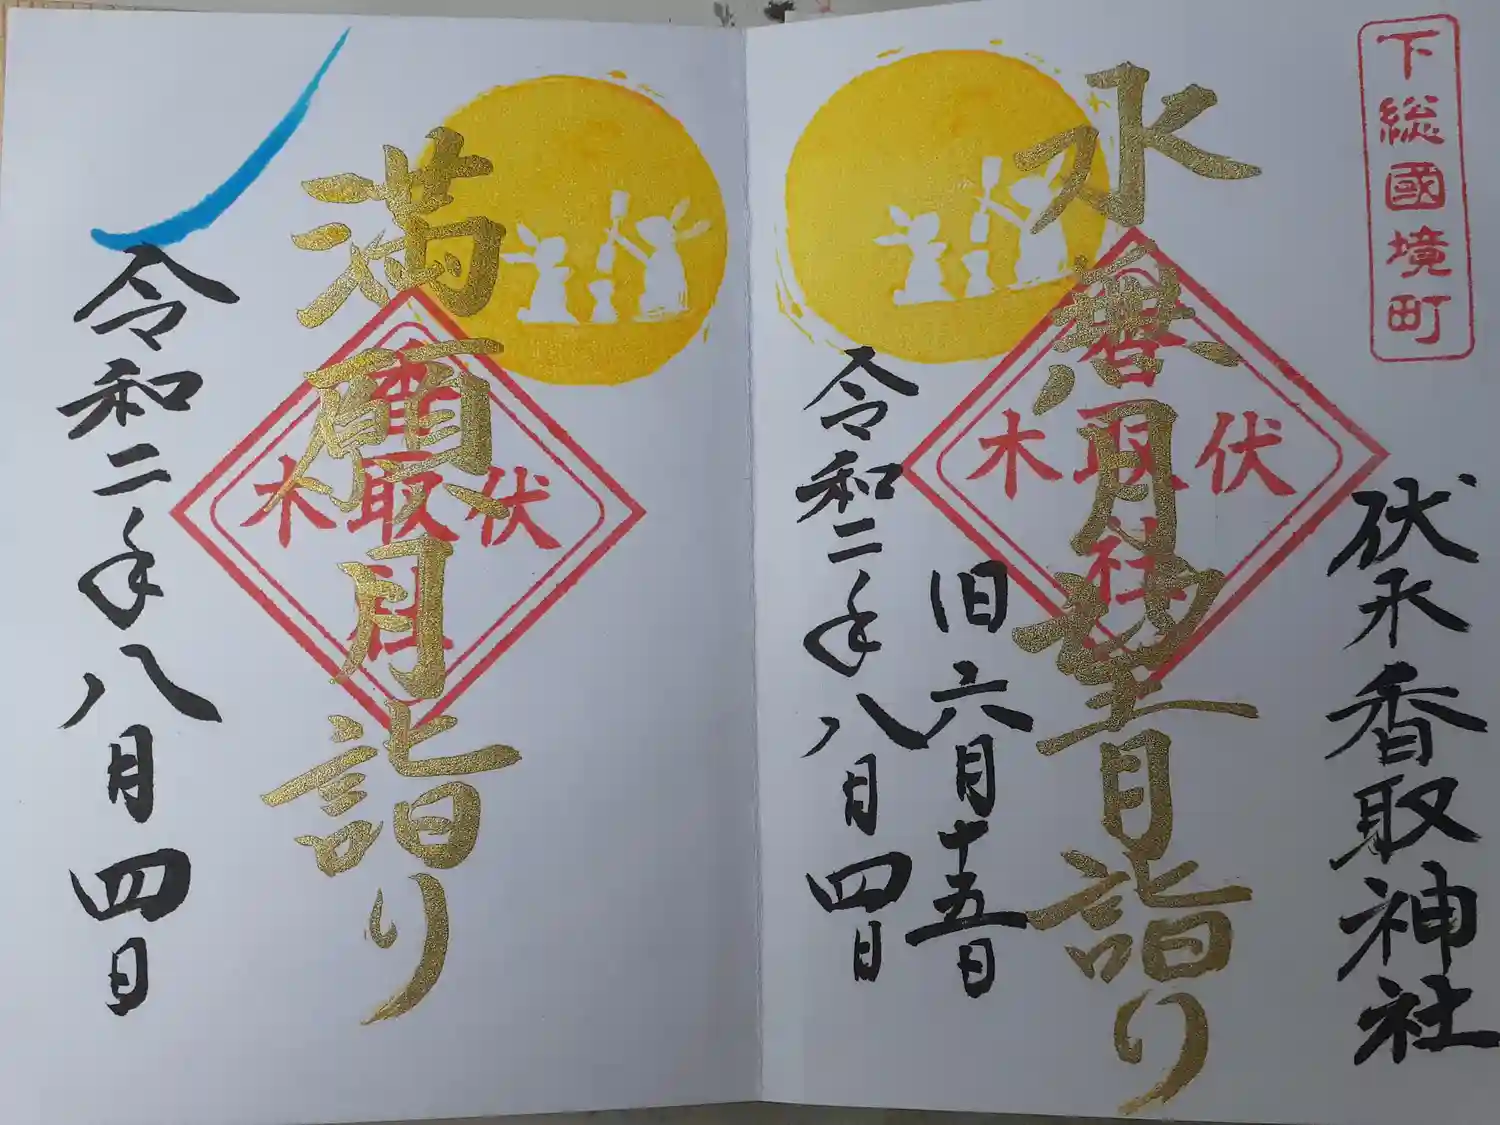 下総國境町
伏木香取神社
水無月望月詣り
伏木
香取社
旧六月十五日
令和二年八月四日
満願月詣り
伏木
香取社
令和二年八月四日